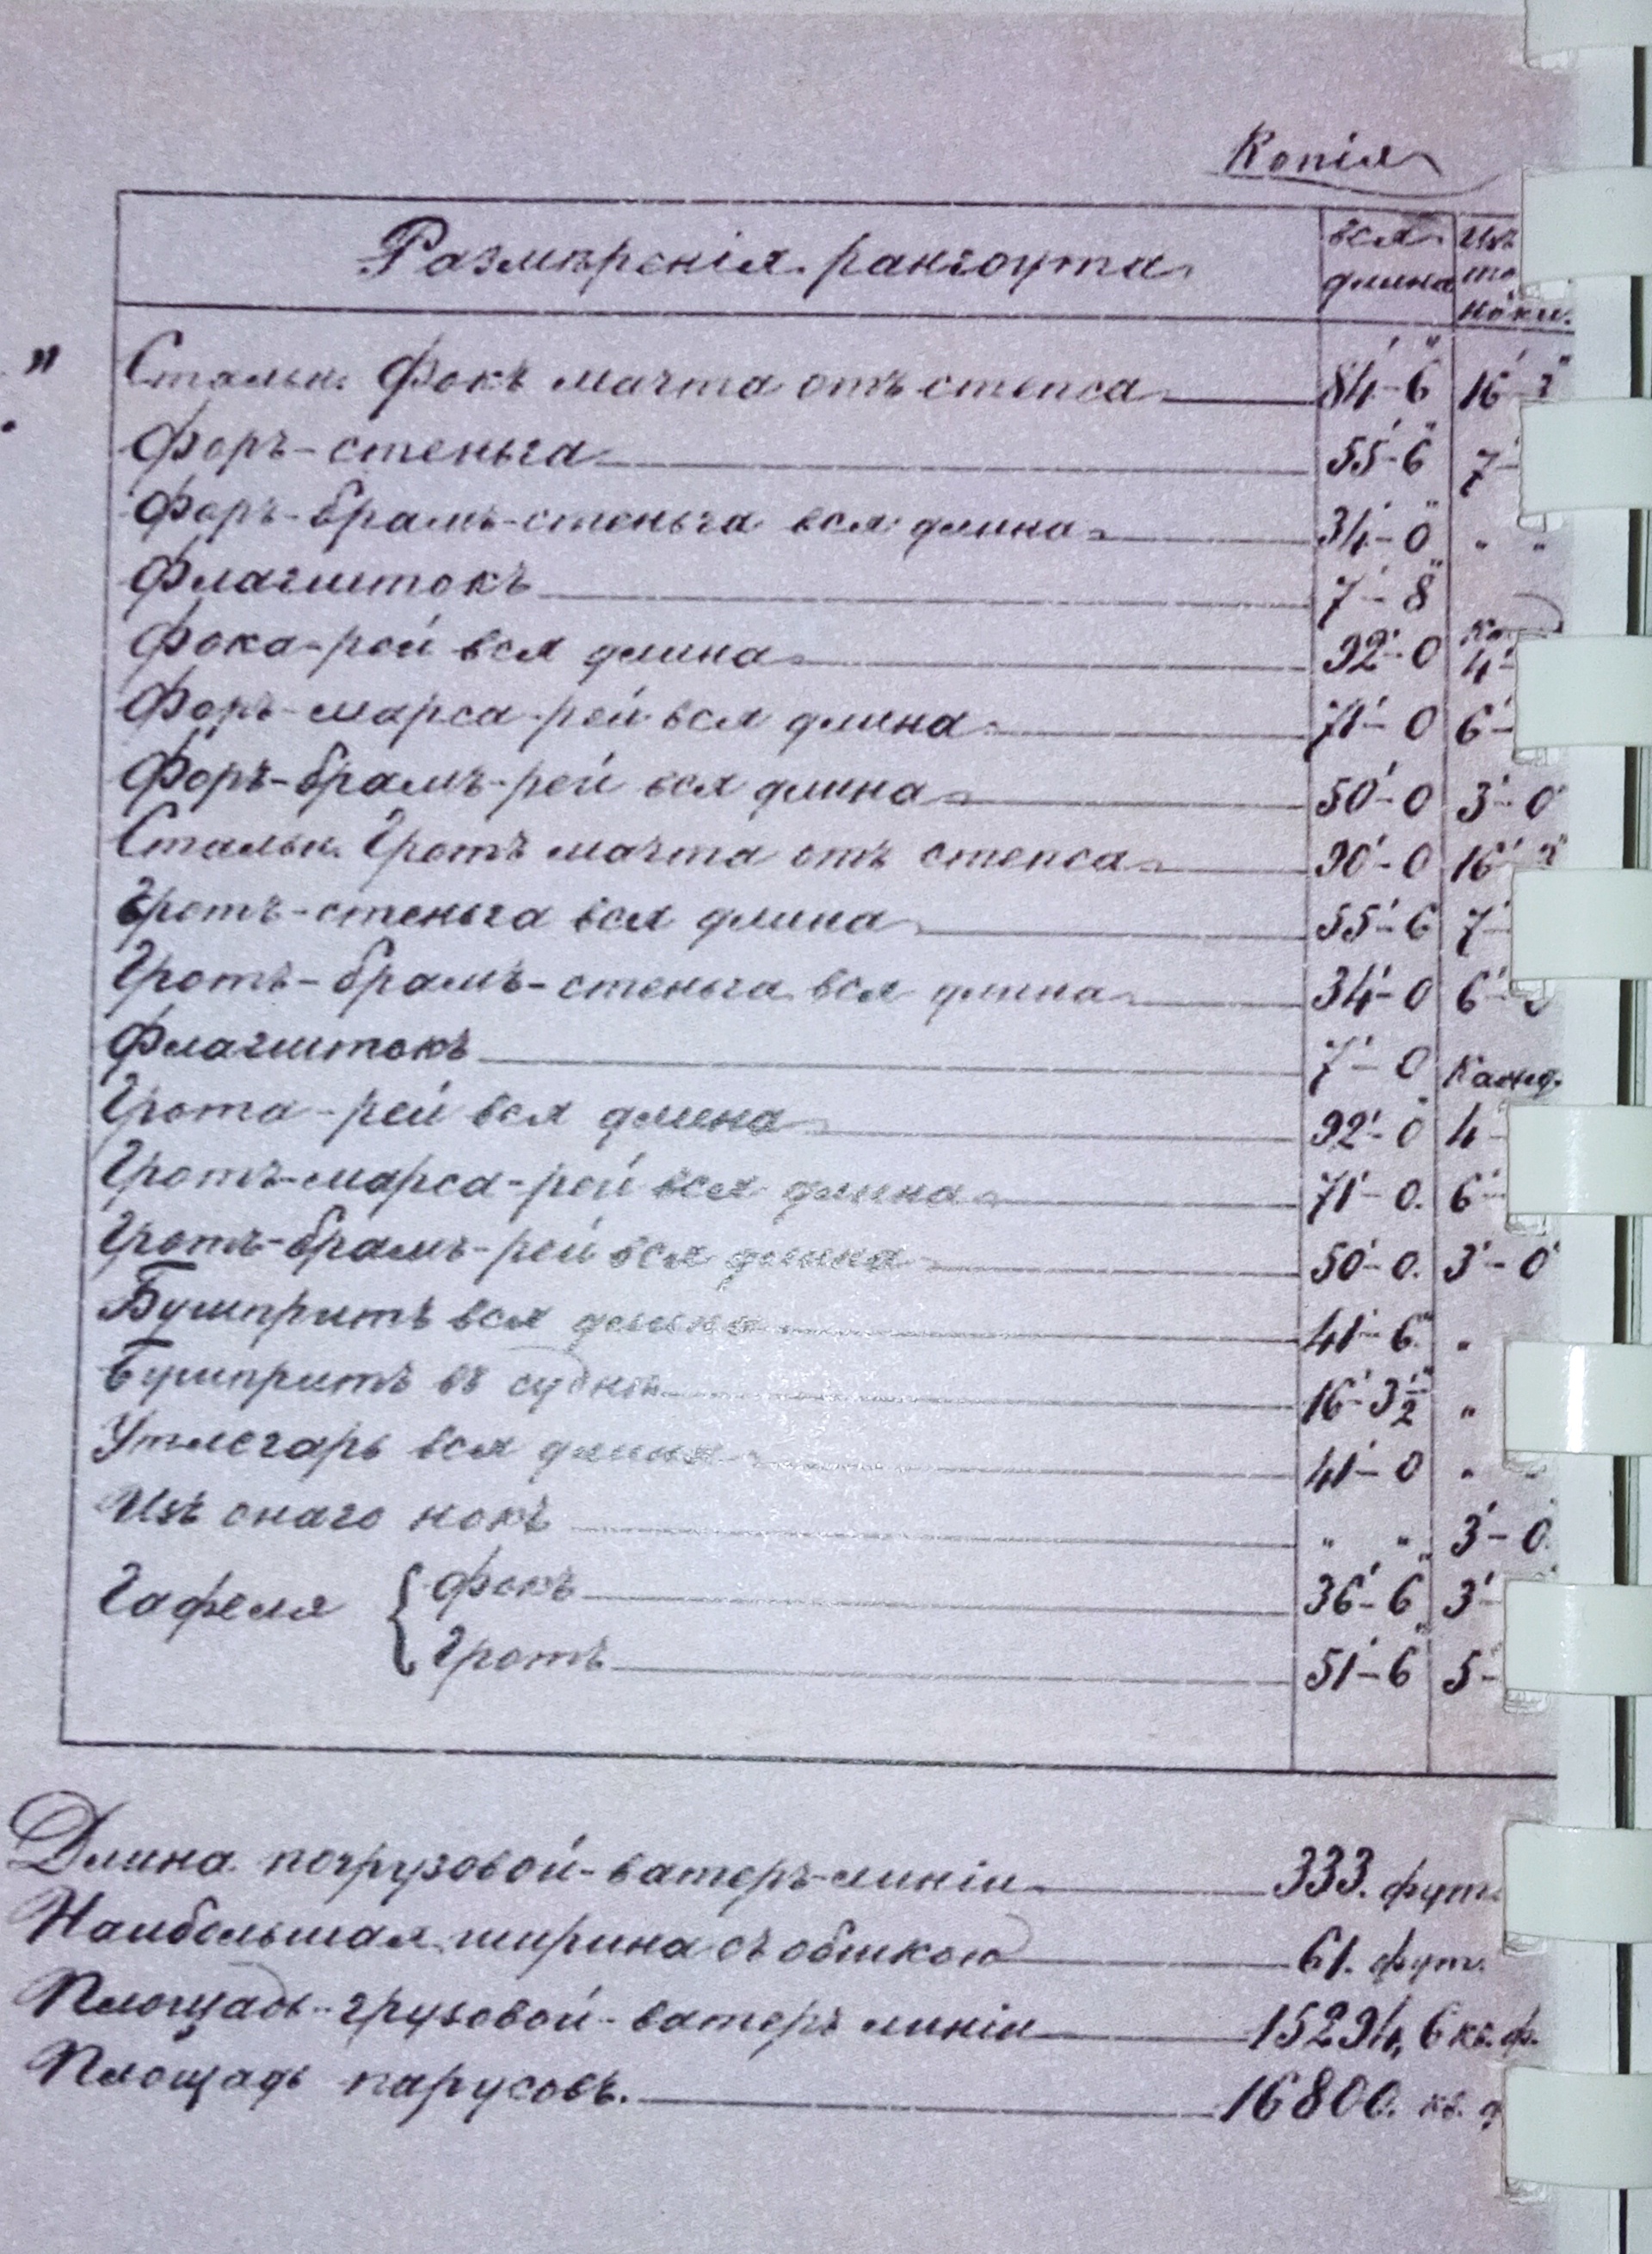 Копія
Размѣренія рангоута вся Изъ
длина то
ноки.
"
Стальн. Фокъ мачта отъ степса 84'-6" 16'
Форъ-стеньга 55'-6" 7'-
Форъ-брамъ-стеньга вся длина 34'-0" " "
Флагштокъ 7'-8"
Фока-рей вся длина 92'-0 4'-
Форъ-марса-рей вся длина 71'-0 6'-
Форъ-брамъ-рей вся длина 50'-0 3'-0
Стальн. Гротъ мачта отъ степса 90'-0 16'
Гротъ-стеньга вся длина 55'-6 7'-
Гротъ-брамъ-стеньга вся длина 34'-0 6'-
Флагштокъ 7'-0 Кажд.
Грота-рей вся длина 92'-0" 4-
Гротъ-марса-рей вся длина 71'-0. 6'-
Гротъ-брамъ-рей вся длина 50'-0. 3'-0
Бушпритъ вся длина 41'-6" "
Бушпритъ въ суднѣ 16'-3½" "
Утлегарь вся длина 41'-0 "
Изъ онаго нокъ " " 3'-0.
Гафеля { фокъ 36'-6" 3'-
Гротъ 51'-6" 5'-
Длина погрузовой-ватеръ-линіи 333. фут.
Наибольшая ширина съ обшкою 61. фут.
Площадь-грузовой-ватеръ линіи 15294,6 кв. ф.
Площадь парусовъ. 16800. кв.